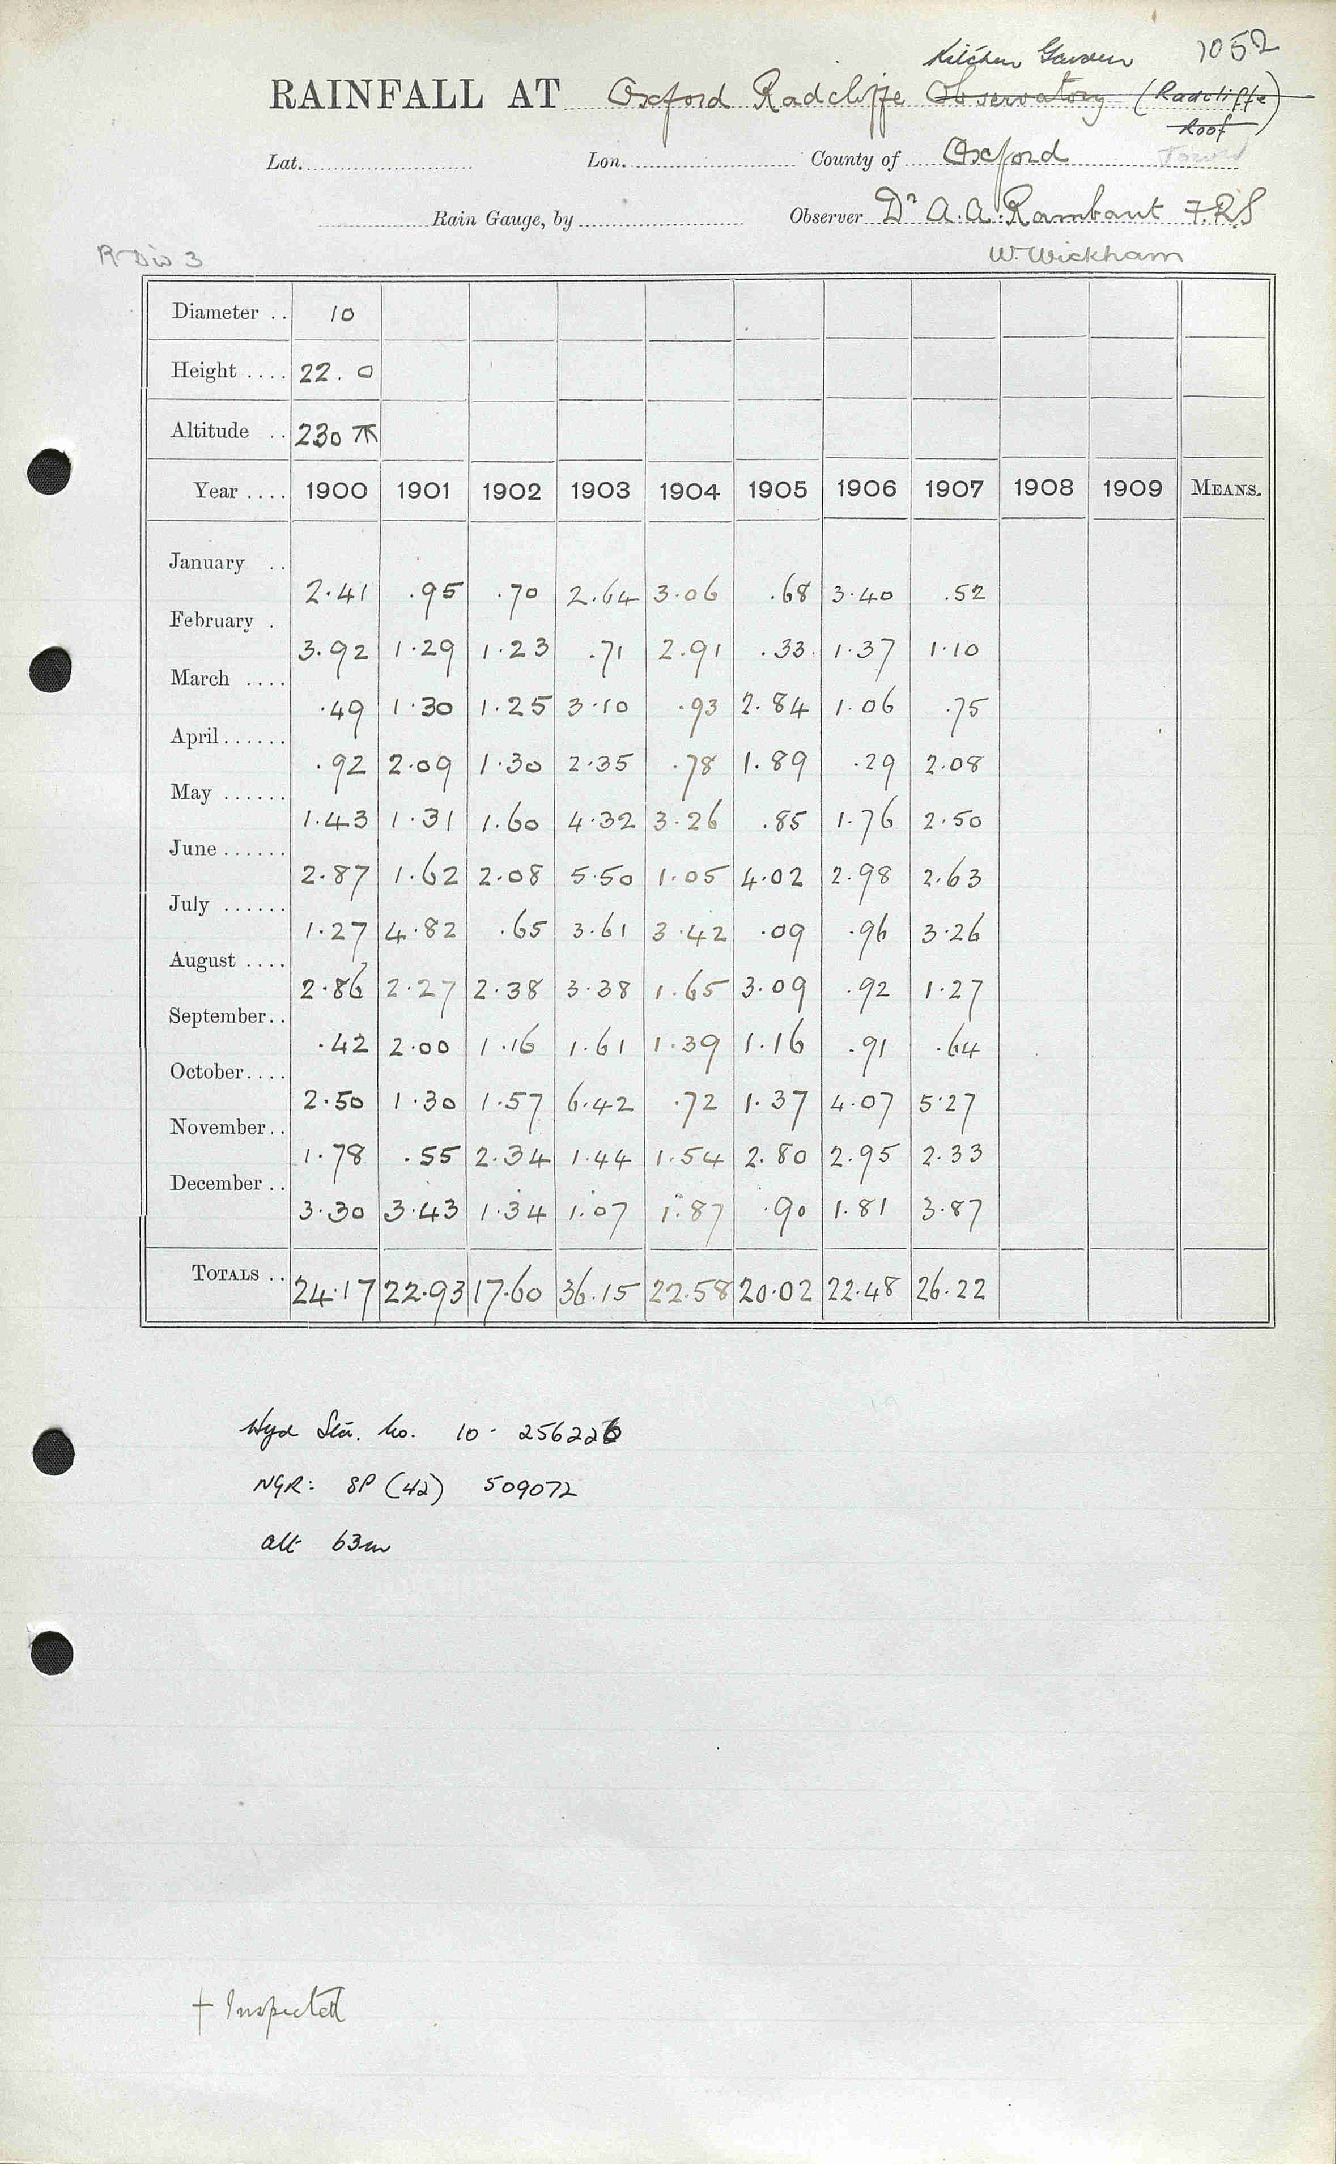 Kitchen Garden 1052
RAINFALL AT Oxford Radcliffe Observatory (Radcliffe
Roof)
Lat. Lon. County of Oxford
Rain Gauge, by Observer Dr A. A. Rambaut F.R.S
R Div 3 W. Wickham
Diameter .. 10
Height .... 22.0
Altitude .. 230
Year .... 1900 1901 1902 1903 1904 1905 1906 1907 1908 1909 MEANS.
January .. 2.41 .95 .70 2.64 3.06 .68 3.40 .52
February . 3.92 1.29 1.23 .71 2.91 .33 1.37 1.10
March .... .49 1.30 1.25 3.10 .93 2.84 1.06 .75
April...... .92 2.09 1.30 2.35 .78 1.89 .29 2.08
May ...... 1.43 1.31 1.60 4.32 3.26 .85 1.76 2.50
June...... 2.87 1.62 2.08 5.50 1.05 4.02 2.98 2.63
July ...... 1.27 4.82 .65 3.61 3.42 .09 .96 3.26
August .... 2.86 2.27 2.38 3.38 1.65 3.09 .92 1.27
September.. .42 2.00 1.16 1.61 1.39 1.16 .91 .64
October.... 2.50 1.30 1.57 6.42 .72 1.37 4.07 5.27
November.. 1.78 .55 2.34 1.44 1.54 2.80 2.95 2.33
December .. 3.30 3.43 1.34 1.07 1.87 .90 1.81 3.87
TOTALS .. 24.17 22.93 17.60 36.15 22.58 20.02 22.48 26.22
Hyd Sta. No. 10 - 256226
NGR: SP (42) 509072
alt 63m
† Inspected